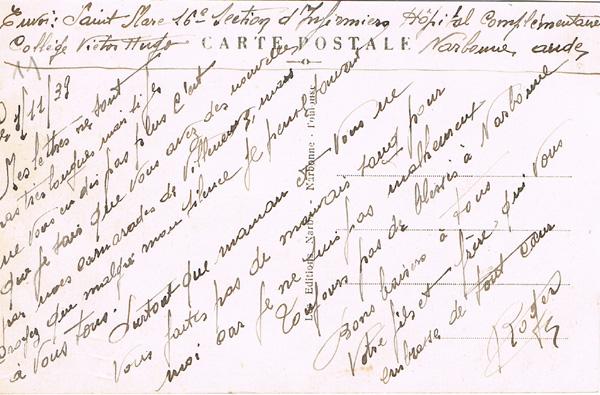 Envoi: Saint Marc 16e Section d'Infirmiers Hôpital Complémentaire
Collège Victor Hugo Narbonne, aude
CARTE POSTALE
11
Le /11/39
Mes lettres ne sont
pas très longues mais si je
ne vous en dis pas plus c'est
que je sais que vous avez des nouvelles
par mes camarades de Villeneuve, mais
croyez que malgré mon silence je pense souvent
à vous tous. Surtout que maman et vous ne
vous faites pas de mauvais sang pour
moi car je ne suis pas malheureux
Toujours pas de blessés à Narbonne
Bons baisers à tous
Votre fils et frère qui vous
embrasse de tout cœur
Roger
Les Editions Narbo - Narbonne - Toulouse